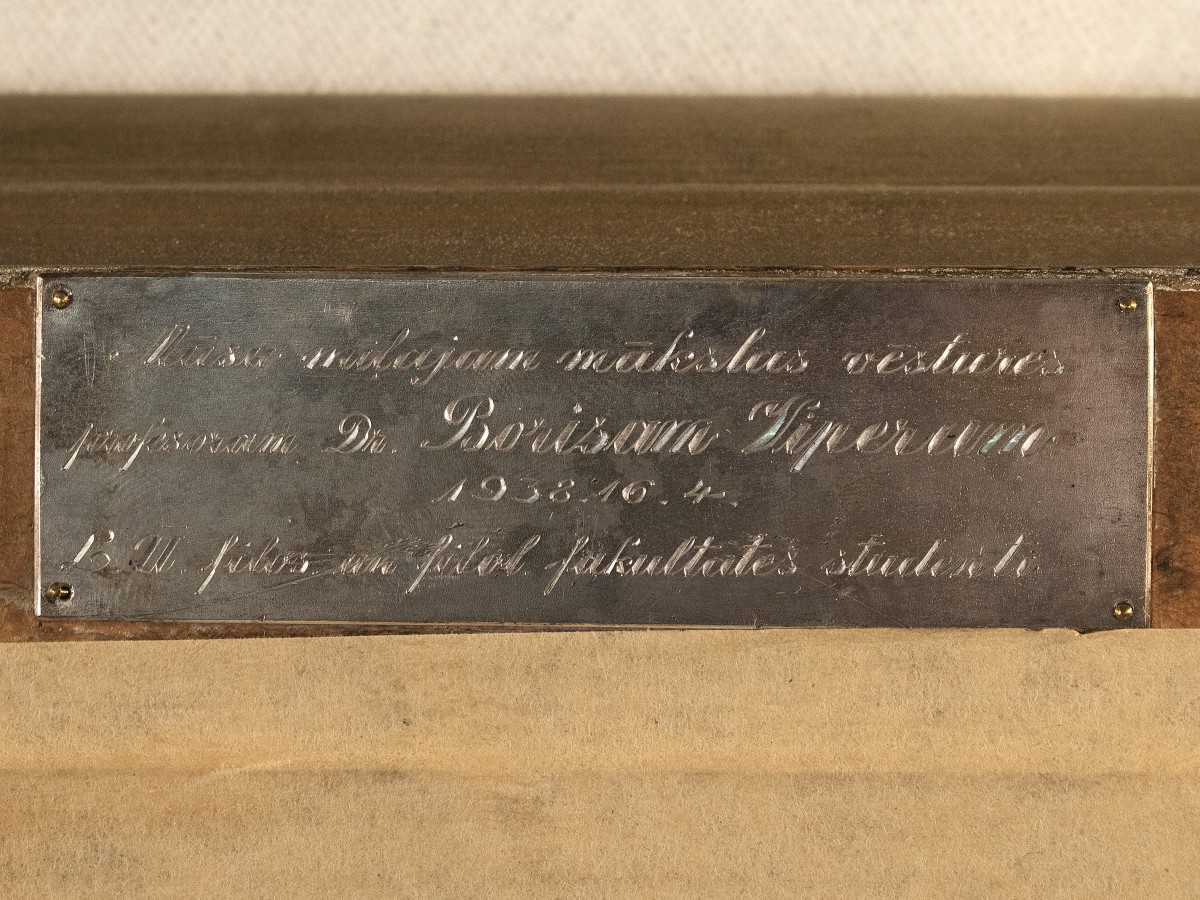 Mūsu mīļajam mākslas vēstures
profesoram Dr. Borisam Viperam
1938.16.4.
L.U filos un filol. fakultātes studenti